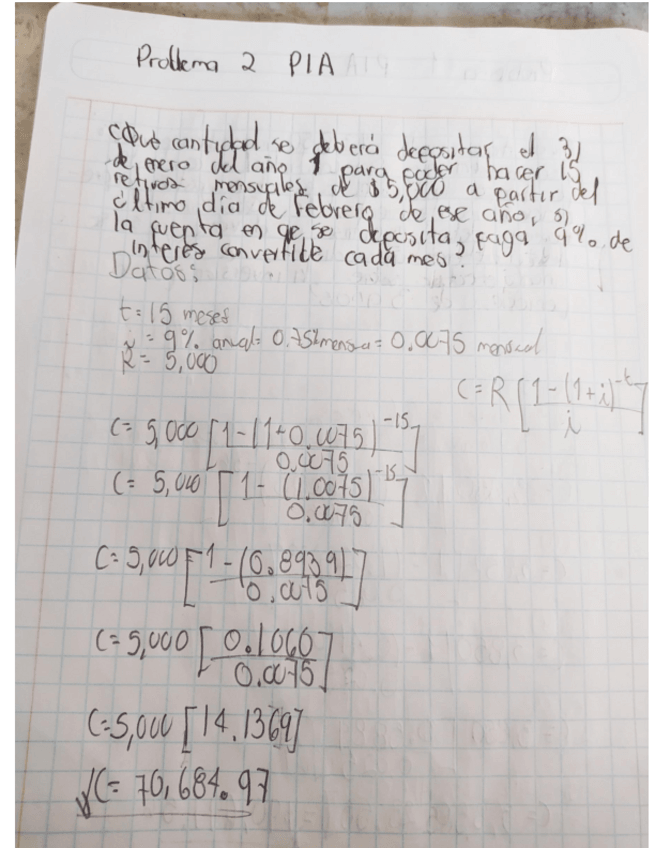 Problema 2 PIA
¿Qué cantidad se deberá depositar el 31
de enero del año 1 para poder hacer 15
retiros mensuales de $5,000 a partir del
último día de Febrero de ese año, si
la cuenta en qe se deposita, paga 9% de
interés convertible cada mes?
Datos:
t= 15 meses
i = 9% anual= 0.75% mensual = 0.0075 mensual
R= 5,000
C= R [1-(1+i)^-t / i]
C= 5,000 [1-(1+0.0075)^-15 / 0.0075]
C= 5,000 [1-(1.0075)^-15 / 0.0075]
C= 5,000 [1-(0.8939) / 0.0075]
C= 5,000 [0.1060 / 0.0075]
C=5,000 [14.1369]
C= 70,684.97